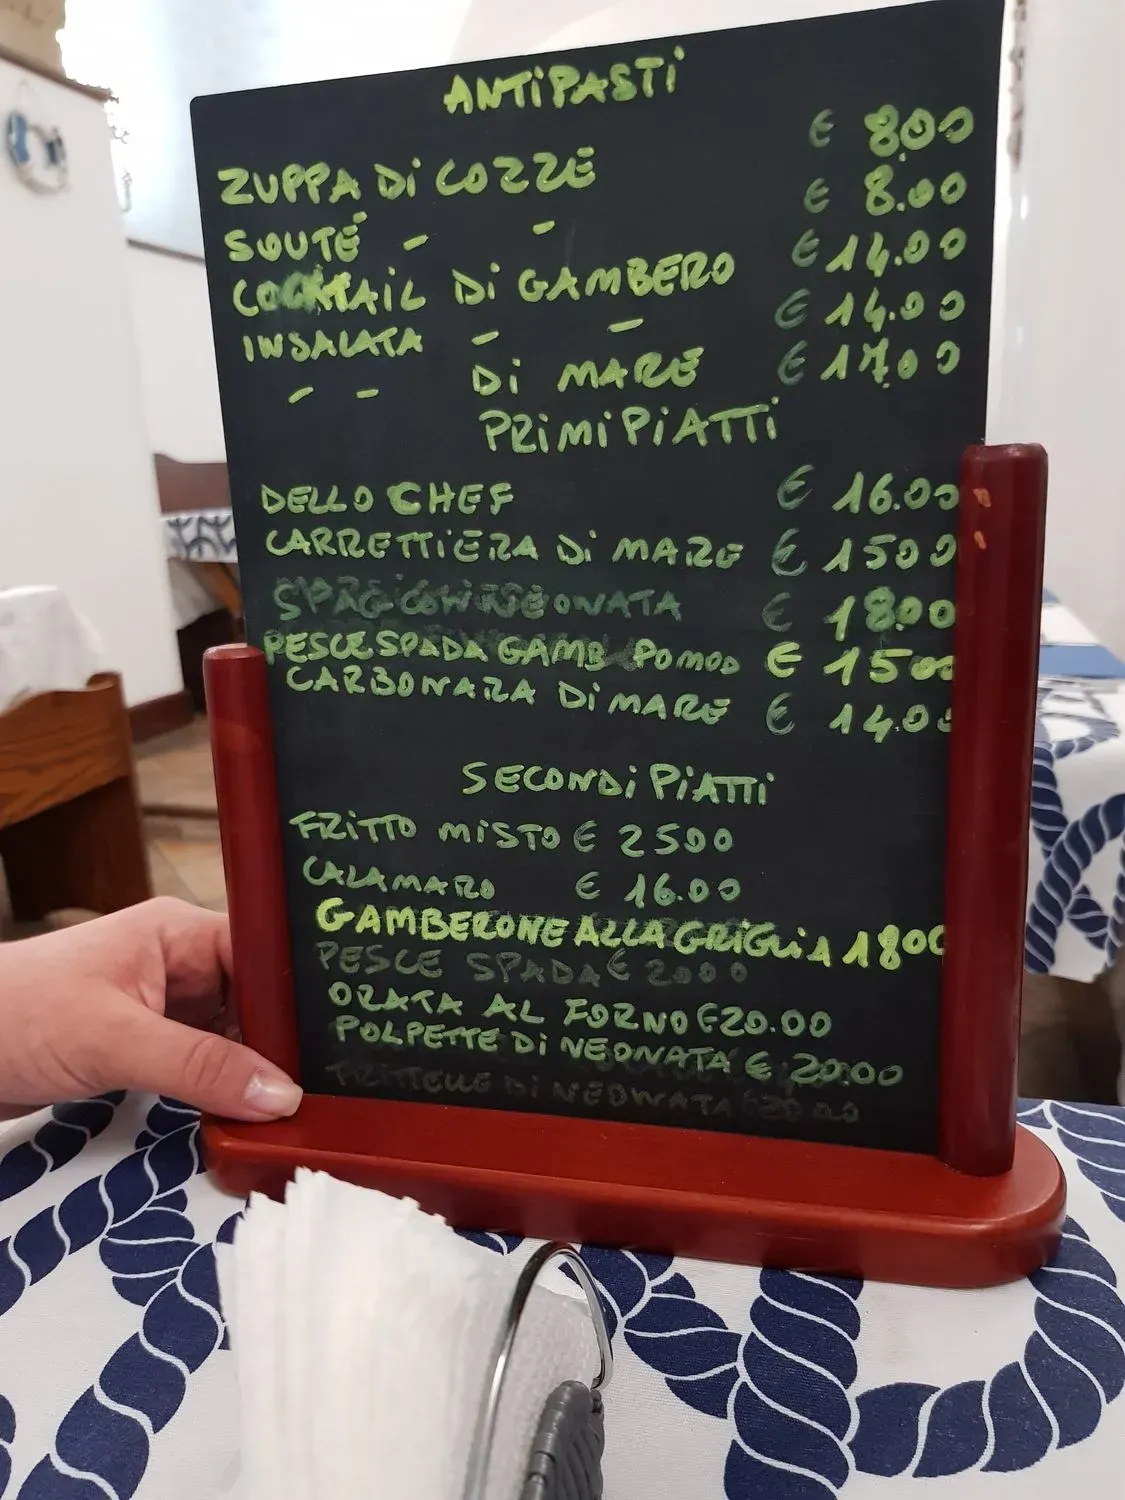 ANTiPASTi
ZUPPA Di COZZE € 8.00
SOUTÉ - - € 8.00
COCKTAiL Di GAMBERO € 14.00
INSALATA - - € 14.00
- - Di MARE € 17.00
PRiMi PiATTi
DELLO CHEF € 16.00
CARRETTiERA Di MARE € 1500
NEONATA € 18.00
PESCE SPADA GAMB POMOD € 1500
CARBONARA Di MARE € 14.00
SECONDi PiATTi
FRITTO MiSTO € 2500
CALAMARO € 16.00
GAMBERONE ALLA GRiGLiA 1800
PESCE SPADA € 2000
ORATA AL FORNO €20.00
POLPETTE Di NEONATA € 20.00
FRITTELLE Di NEONATA €20.00